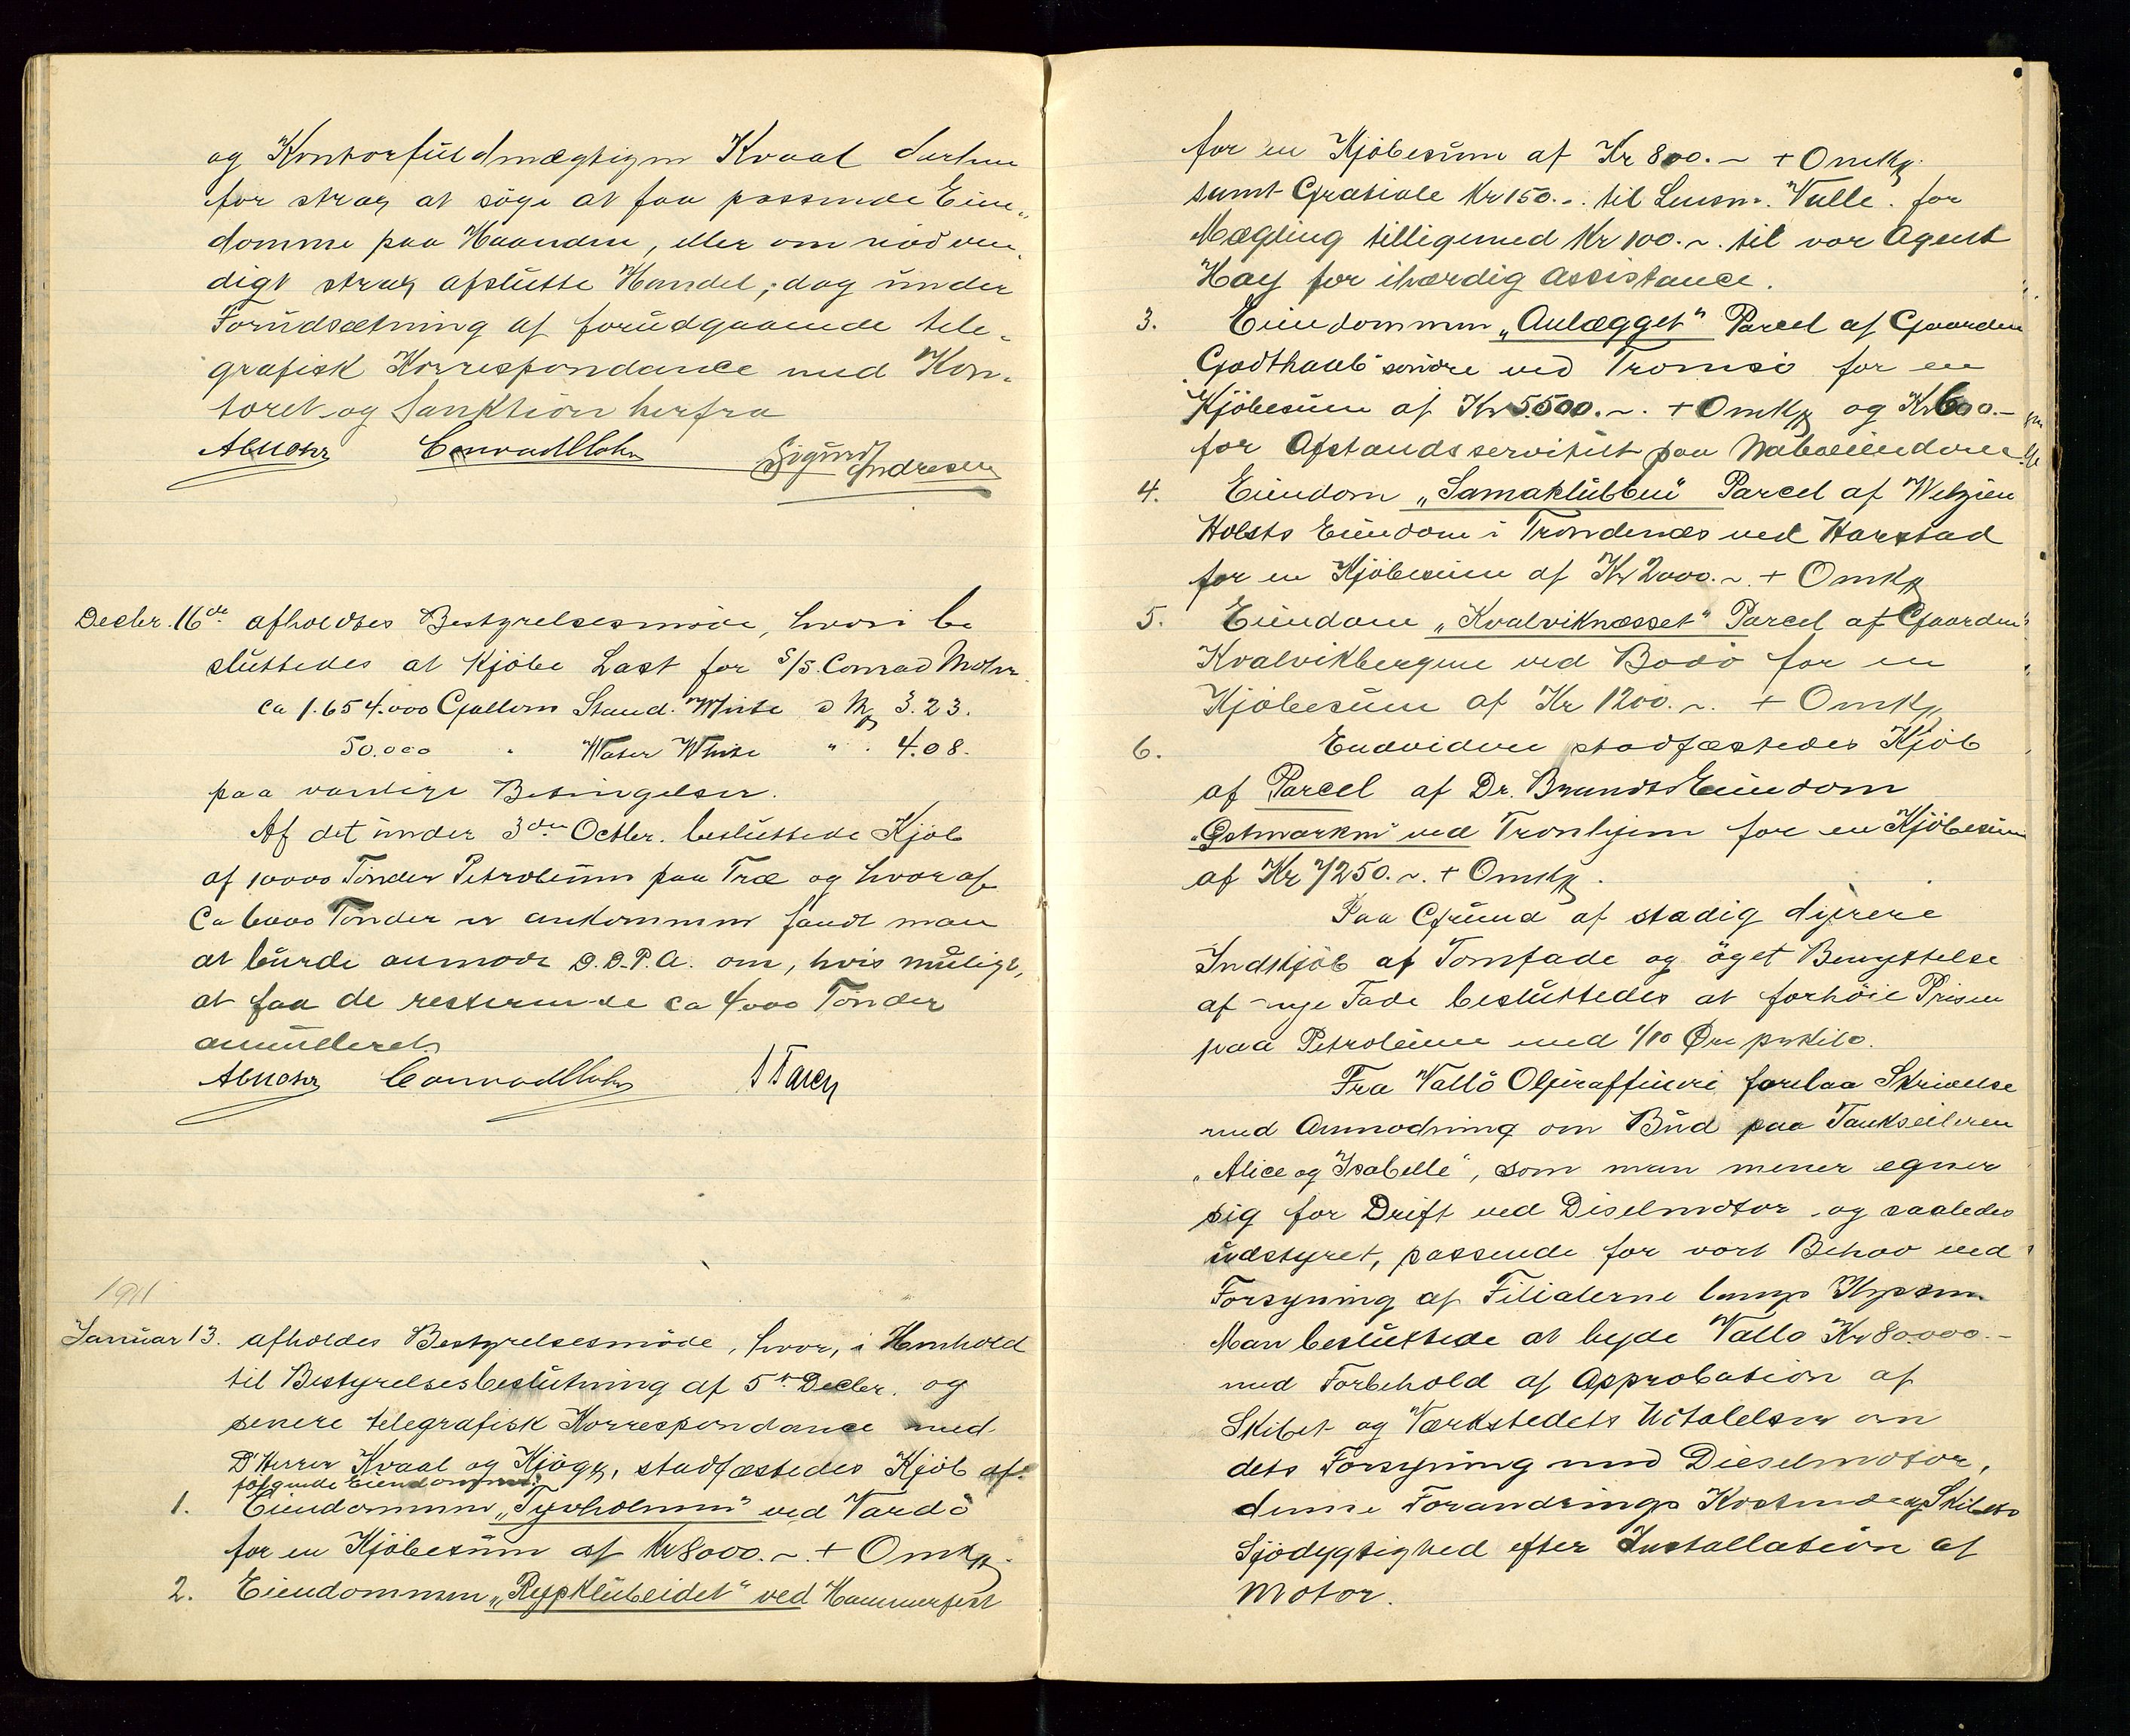 og Kontorfuldmægtigen Kvaal derhen
for strax at söge at faa passende Eien„
domme paa Haanden, eller om nödven„
digt strax afslutte Handel; dog under
Forudsætning af forudgaaende tele„
grafisk Korrespondance med Kon„
toret og Sanktion herfra
AbMohr Conrad Mohr Sigurd Andresen
Decbr. 16de afholdtes Bestyrelsesmöde, hvori be
sluttedes at Kjöbe Last for S/S. Conrad Mohr
ca 1.654.000 Gallons Stand. White a 3.23.
50.000 " Water White " . 4.08.
paa vanlige Betingelser.
Af det under 3die Octbr. besluttede Kjöb
af 10000 Tönder Petroleum paa Træ og hvoraf
Ca 6000 Tönder er ankommen fandt man
at burde anmode D.D.P.A. om, hvis muligt,
at faa de resterende ca 4000 Tönder
annulleret.
AbMohr Conrad Mohr
1911
Januar 13. afholdes Bestyrelsesmöde, hvor, i Henhold
til Bestyrelsesbeslutning af 5te Decbr. og
senere telegrafisk Korrespondance med
D'Herrer Kvaal og Kjöge, stadfæstedes Kjöb af
fölgende Eiendomme:
1. Eiendommen „Tyvholmen" ved Vardö
for en Kjöbesum af Kr 8000.~ + Omkg.
2. Eiendommen „Rypklubeidet" ved Hammerfest
for en Kjöbesum af Kr 800.~ + Omkg.
samt Gratiale Kr 150.~. til Lensm. Valle. for
Mægling tilligemed Kr 100.~. til vor Agent
Hay for ihærdig Assistance.
3. Eiendommen „Anlægget" Parcel af Gaarden
„Godthaab" söndre ved Tromsö for en
Kjöbesum af Kr 5500.~. + Omkg og Kr 600.-
for Afstandsservitut paa Naboeiendom
4. Eiendom „Samaklubben" Parcel af Wetzien
Holsts Eiendom i Trondenæs ved Harstad
for en Kjöbesum af Kr 2000.~. + Omkg
5. Eiendom „Kvalviknæsset" Parcel af Gaarden
Kvalvikbergene ved Bodö for en
Kjöbesum af Kr 1200.~. + Omkg
6. Endvidere stadfæstedes Kjöb
af Parcel af Dr. Brandts Eiendom
„Östmarken" ved Tronhjem for en Kjöbesum
af Kr 7250.~. + Omkg.
Paa Grund af stadig dyrere
Indkjöb af Tomfade og öget Benyttelse
af nye Fade besluttedes at forhöie Prisen
paa Petroleum med 1/10 Øre pr Kilo.
Fra Vallö Oljeraffineri forelaa Skrivelse
med Anmodning om Bud paa Tankseileren
„Alice og Isabelle", som man mener egner
sig for Drift ved Diselmotor og saaledes
udstyret, passende for vort Behov ved
Forsyning af Filialerne langs Kysten.
Man besluttede at byde Vallö Kr 80.000.-
med Forbehold af Approbation af
Skibet og Værkstedets Udtalelser om
dets Forsyning med Dieselmotor,
denne Forandrings Kostende og Skibets
Sjödygtighed efter Installation af
Motor.